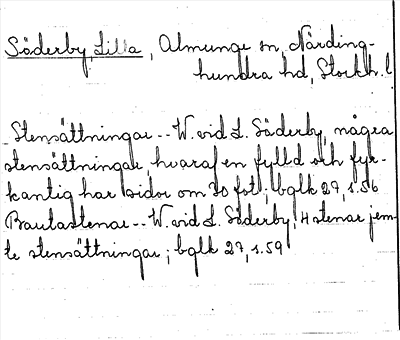 Söderby, Lilla, Almunge sn, Närding-
hundra hd, Stockh. l
Stensättningar -- W. vid L. Söderby, några
stensättningar, hvaraf en fylld och fyr-
kantig har sidor om 30 fot; bglk 27, s. 56
Bautastenar -- W. vid L. Söderby, 4 stenar jem-
te stensättningar; bglk 27, s. 59